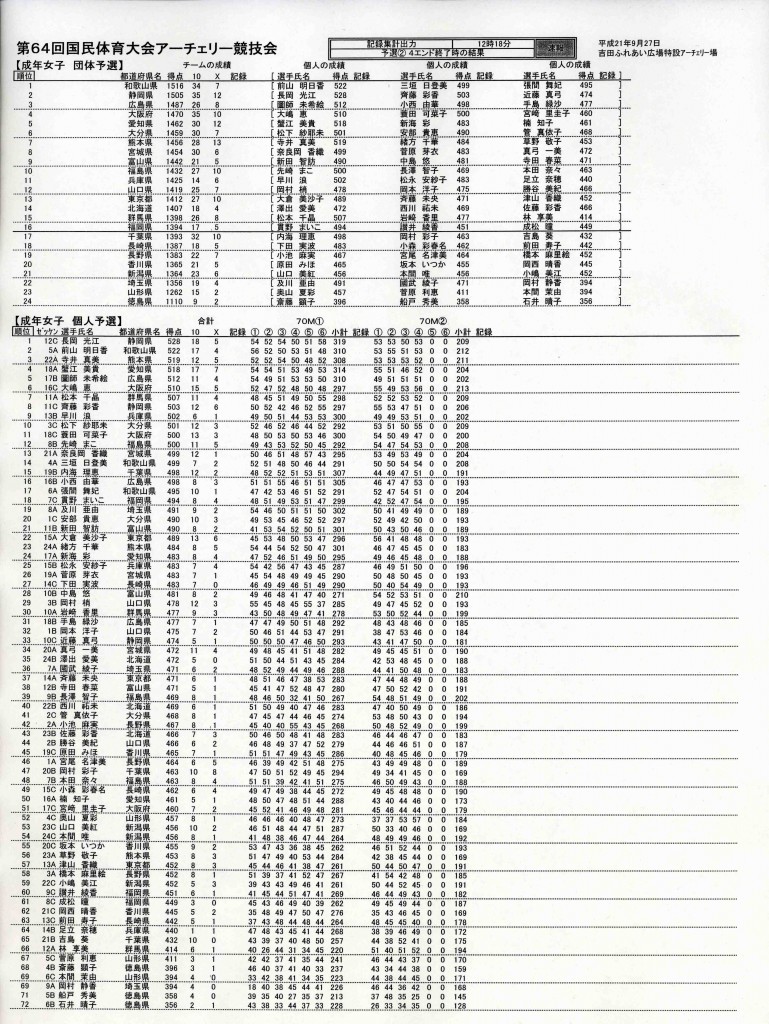 第64回国民体育大会アーチェリー競技会
記録集計出力 12時18分
予選② 4エンド終了時の結果
速報
平成21年9月27日
吉田ふれあい広場特設アーチェリー場
【成年女子 団体予選】 チームの成績 個人の成績 個人の成績 個人の成績
順位 都道府県名 得点 10 X 記録 [ 選手氏名 得点 選手氏名 得点 選手氏名 得点 ]
1 和歌山県 1516 34 7 [ 前山 明日香 522 三垣 日登美 499 張間 舞妃 495 ]
2 静岡県 1505 35 12 [ 長岡 光江 528 斉藤 彩香 503 近藤 真弓 474 ]
3 広島県 1487 26 8 [ 圖師 未希絵 512 小西 由華 498 手島 緑沙 477 ]
4 大阪府 1470 35 10 [ 大嶋 恵 510 蓑田 可菜子 500 宮崎 里圭子 460 ]
5 愛知県 1462 30 12 [ 蟹江 美貴 518 新海 彩 483 楠 知子 461 ]
6 大分県 1459 30 7 [ 松下 紗耶未 501 安部 貴恵 490 菅 真依子 468 ]
7 熊本県 1456 28 13 [ 寺井 真美 519 緒方 千華 484 草野 敬子 453 ]
8 宮城県 1454 30 6 [ 奈良岡 香織 499 菅原 芽衣 483 真弓 一美 472 ]
9 富山県 1442 21 5 [ 新田 智訪 490 中島 悠 481 寺田 春菜 471 ]
10 福島県 1432 27 10 [ 先崎 まこ 500 長澤 智子 469 本田 奈々 463 ]
11 兵庫県 1425 14 6 [ 早川 浪 502 松永 安紗子 483 足立 奈穂 440 ]
12 山口県 1419 25 7 [ 岡村 梢 478 岡本 洋子 475 勝谷 美紀 466 ]
13 東京都 1412 27 10 [ 大倉 美沙子 489 斉藤 未央 471 津山 香織 452 ]
14 北海道 1407 18 4 [ 澤出 愛美 472 西川 祐未 469 佐藤 彩香 466 ]
15 群馬県 1398 26 8 [ 松本 千晶 507 岩崎 香里 477 林 享美 414 ]
16 福岡県 1394 17 5 [ 貫野 まいこ 494 讃井 綾香 451 成松 瞳 449 ]
17 千葉県 1393 32 10 [ 内海 理恵 498 岡村 彩子 463 吉島 葵 432 ]
18 長崎県 1387 18 5 [ 下田 実波 483 小森 彩春名 462 前田 寿子 442 ]
19 長野県 1383 22 7 [ 小池 麻実 467 宮尾 名津美 464 橋本 麻里絵 452 ]
20 香川県 1365 21 5 [ 原田 みほ 465 坂本 いつか 455 岡西 晴香 445 ]
21 新潟県 1364 23 6 [ 山口 美紅 456 本間 唯 456 小嶋 美江 452 ]
22 埼玉県 1356 19 4 [ 及川 亜由 491 國武 綾子 471 岡村 静香 394 ]
23 山形県 1262 15 2 [ 奥山 夏彩 457 菅原 利恵 411 本間 茉由 394 ]
24 徳島県 1110 9 2 [ 斎藤 顕子 396 船戸 秀美 358 石井 晴子 356 ]
【成年女子 個人予選】 合計 70M① 70M②
順位 ゼッケン 選手氏名 都道府県名 得点 10 X 記録 ① ② ③ ④ ⑤ ⑥ 小計 記録 ① ② ③ ④ ⑤ ⑥ 小計 記録
1 12C 長岡 光江 静岡県 528 18 5 54 52 54 50 51 58 319 53 53 50 53 0 0 209
2 5A 前山 明日香 和歌山県 522 17 4 56 52 50 53 51 48 310 53 55 51 53 0 0 212
3 22A 寺井 真美 熊本県 519 12 5 52 52 54 48 49 53 308 53 53 53 52 0 0 211
4 18A 蟹江 美貴 愛知県 518 17 7 54 54 51 53 49 53 314 55 51 46 52 0 0 204
5 17B 圖師 未希絵 広島県 512 11 4 54 49 51 53 53 50 310 49 51 51 51 0 0 202
6 16C 大嶋 恵 大阪府 510 15 5 52 47 52 48 50 48 297 55 49 53 56 0 0 213
7 11A 松本 千晶 群馬県 507 11 4 48 45 51 49 50 55 298 52 52 53 52 0 0 209
8 11C 斉藤 彩香 静岡県 503 12 6 50 52 42 46 52 55 297 55 53 47 51 0 0 206
9 13B 早川 浪 兵庫県 502 6 1 49 50 51 44 53 53 300 49 49 53 51 0 0 202
10 3C 松下 紗耶未 大分県 501 12 3 52 46 52 46 44 52 292 53 51 50 55 0 0 209
11 18C 蓑田 可菜子 大阪府 500 13 3 48 50 53 50 53 46 300 54 50 49 47 0 0 200
12 8B 先崎 まこ 福島県 500 11 5 49 43 53 52 45 50 292 54 47 54 53 0 0 208
13 21A 奈良岡 香織 宮城県 499 12 1 50 46 51 48 57 43 295 53 49 53 49 0 0 204
14 4A 三垣 日登美 和歌山県 499 7 2 52 51 48 50 46 44 291 50 50 54 54 0 0 208
15 19B 内海 理恵 千葉県 498 12 2 48 52 52 51 53 51 307 44 49 47 51 0 0 191
16 16B 小西 由華 広島県 498 8 3 51 51 55 46 51 51 305 46 47 47 53 0 0 193
17 6A 張間 舞妃 和歌山県 495 10 1 47 42 53 46 51 52 291 52 47 54 51 0 0 204
18 7C 貫野 まいこ 福岡県 494 8 4 48 51 49 53 51 47 299 42 52 47 54 0 0 195
19 8A 及川 亜由 埼玉県 491 9 2 54 46 50 51 51 50 302 50 41 49 49 0 0 189
20 1C 安部 貴恵 大分県 490 10 3 49 53 45 46 52 52 297 52 49 42 50 0 0 193
21 11B 新田 智訪 富山県 490 8 2 41 53 54 52 50 51 301 50 43 50 46 0 0 189
22 15A 大倉 美沙子 東京都 489 13 6 45 53 48 50 53 47 296 56 41 48 48 0 0 193
23 24A 緒方 千華 熊本県 484 8 5 54 44 54 52 50 47 301 46 47 45 45 0 0 183
24 17A 新海 彩 愛知県 483 8 4 47 52 46 51 49 50 295 46 49 45 48 0 0 188
25 15B 松永 安紗子 兵庫県 483 7 4 54 42 56 47 43 45 287 46 49 51 50 0 0 196
26 19A 菅原 芽衣 宮城県 483 7 1 45 54 48 49 49 45 290 50 48 50 45 0 0 193
27 14C 下田 実波 長崎県 483 7 0 46 49 49 46 51 49 290 50 40 54 49 0 0 193
28 10B 中島 悠 富山県 481 8 2 49 46 48 41 47 40 271 54 52 53 51 0 0 210
29 3B 岡村 梢 山口県 478 12 3 55 45 48 45 55 37 285 49 47 45 52 0 0 193
30 10A 岩崎 香里 群馬県 477 9 3 43 50 48 49 47 41 278 53 50 52 44 0 0 199
31 18B 手島 緑沙 広島県 477 7 1 47 47 49 50 51 48 292 48 43 48 46 0 0 185
32 1B 岡本 洋子 山口県 475 7 2 50 46 51 44 53 47 291 38 47 53 46 0 0 184
33 10C 近藤 真弓 静岡県 474 5 1 50 50 50 47 46 50 293 43 41 47 50 0 0 181
34 20A 真弓 一美 宮城県 472 11 4 49 48 45 41 51 48 282 49 45 45 51 0 0 190
35 24B 澤出 愛美 北海道 472 5 0 51 50 44 51 43 45 284 42 53 48 45 0 0 188
36 7A 國武 綾子 埼玉県 471 6 2 48 52 49 44 49 46 288 44 41 50 48 0 0 183
37 14A 斉藤 未央 東京都 471 6 1 48 51 46 47 38 53 283 47 44 49 48 0 0 188
38 12B 寺田 春菜 富山県 471 5 1 45 41 47 52 48 47 280 47 50 52 42 0 0 191
39 9B 長澤 智子 福島県 469 8 1 48 46 50 32 41 50 267 54 48 51 49 0 0 202
40 22B 西川 祐未 北海道 469 6 1 51 50 49 40 47 46 283 47 40 50 49 0 0 186
41 2C 菅 真依子 大分県 468 8 1 47 45 47 44 46 45 274 53 48 50 43 0 0 194
42 2A 小池 麻実 長野県 467 8 1 45 40 40 55 43 45 268 50 48 52 49 0 0 199
43 23B 佐藤 彩香 北海道 466 7 3 50 46 50 48 41 48 283 46 44 46 47 0 0 183
44 2B 勝谷 美紀 山口県 466 6 2 46 48 49 37 47 52 279 44 46 46 51 0 0 187
45 19C 原田 みほ 香川県 465 7 1 51 51 47 49 43 45 286 40 48 45 46 0 0 179
46 1A 宮尾 名津美 長野県 464 6 5 46 39 49 42 51 48 275 43 49 49 48 0 0 189
47 20B 岡村 彩子 千葉県 463 10 8 47 50 51 52 49 45 294 49 34 41 45 0 0 169
48 7B 本田 奈々 福島県 463 8 4 51 51 39 42 41 51 275 46 50 49 43 0 0 188
49 15C 小森 彩春名 長崎県 462 6 4 49 47 49 38 44 45 272 49 45 48 48 0 0 190
50 16A 楠 知子 愛知県 461 5 1 48 50 47 48 51 44 288 43 40 44 46 0 0 173
51 17C 宮崎 里圭子 大阪府 460 7 2 45 52 41 46 49 48 281 45 46 44 44 0 0 179
52 4C 奥山 夏彩 山形県 457 8 1 46 46 46 40 48 47 273 37 37 53 57 0 0 184
53 23C 山口 美紅 新潟県 456 10 2 46 51 48 44 47 51 287 50 33 40 46 0 0 169
54 24C 本間 唯 新潟県 456 8 1 41 48 38 46 47 44 264 48 49 49 46 0 0 192
55 20C 坂本 いつか 香川県 455 9 2 53 47 43 36 38 45 262 46 51 52 44 0 0 193
56 23A 草野 敬子 熊本県 453 8 3 51 47 49 40 53 44 284 42 38 45 44 0 0 169
57 13A 津山 香織 東京都 452 8 3 45 44 46 41 38 47 261 50 44 50 47 0 0 191
58 3A 橋本 麻里絵 長野県 452 8 1 51 39 37 41 52 47 267 41 54 42 48 0 0 185
59 22C 小嶋 美江 新潟県 452 5 3 39 43 43 49 46 41 261 50 44 52 45 0 0 191
60 9C 讃井 綾香 福岡県 451 6 1 41 45 44 51 47 41 269 46 44 49 43 0 0 182
61 8C 成松 瞳 福岡県 449 3 0 45 43 46 49 40 39 262 49 45 49 44 0 0 187
62 21C 岡西 晴香 香川県 445 5 2 35 48 49 47 50 47 276 35 43 46 45 0 0 169
63 13C 前田 寿子 長崎県 442 5 1 37 43 48 44 48 44 264 48 45 45 40 0 0 178
64 14B 足立 奈穂 兵庫県 440 1 1 47 48 43 45 41 44 268 38 39 46 49 0 0 172
65 21B 吉島 葵 千葉県 432 10 0 43 39 37 40 48 50 257 44 38 52 41 0 0 175
66 12A 林 享美 群馬県 414 6 1 40 26 44 31 34 45 220 51 40 51 52 0 0 194
67 5C 菅原 利恵 山形県 411 3 1 42 42 37 41 35 44 241 46 44 43 37 0 0 170
68 4B 斎藤 顕子 徳島県 396 3 1 46 40 37 41 40 33 237 43 34 44 38 0 0 159
69 6C 本間 茉由 山形県 394 4 0 33 42 38 41 34 35 223 44 38 44 45 0 0 171
69 9A 岡村 静香 埼玉県 394 4 0 18 40 38 45 44 41 226 46 44 36 42 0 0 168
71 5B 船戸 秀美 徳島県 358 4 0 39 35 40 27 35 37 213 37 48 35 25 0 0 145
72 6B 石井 晴子 徳島県 356 2 1 43 38 33 44 37 33 228 26 33 34 35 0 0 128